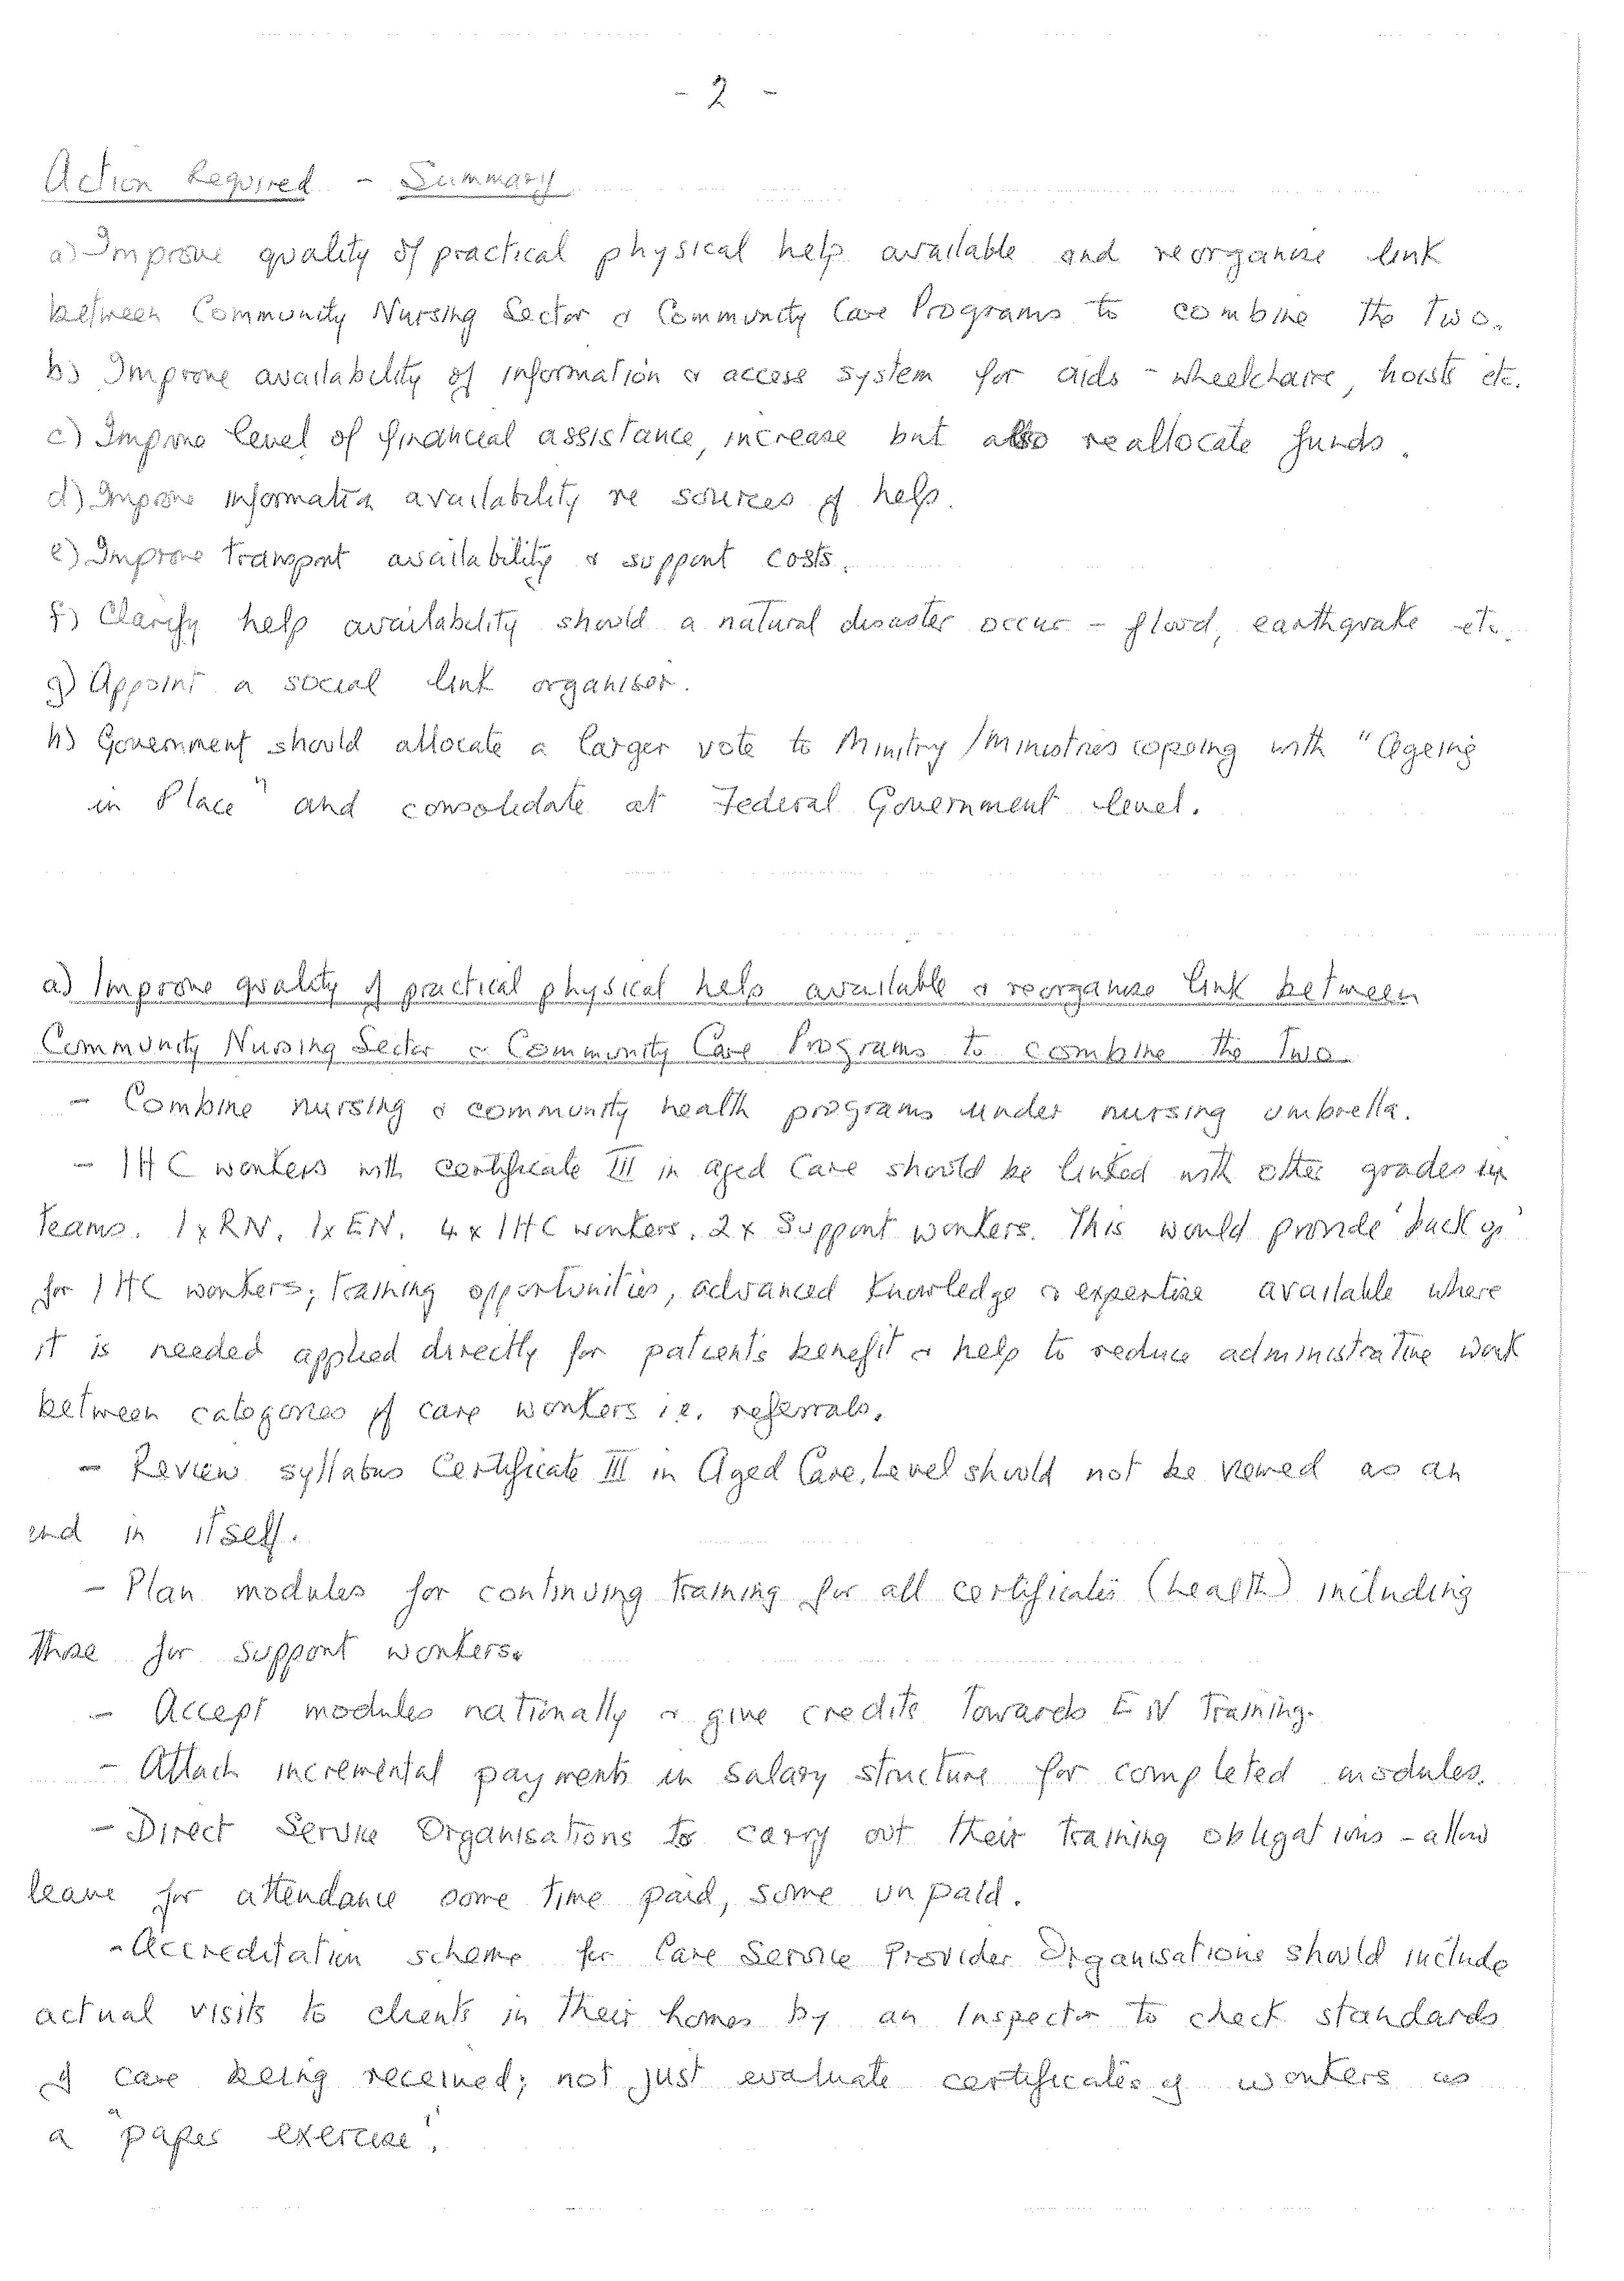 - 2 -
Action Required - Summary
a) Improve quality of practical physical help available and reorganise link
between Community Nursing Sector & Community Care Programs to combine the two.
b) Improve availability of information & access system for aids - wheelchairs, hoists etc.
c) Improve level of financial assistance, increase but also reallocate funds.
d) Improve information availability re sources of help.
e) Improve transport availability & support costs.
f) Clarify help availability should a natural disaster occur - flood, earthquake etc.
g) Appoint a social link organiser.
h) Government should allocate a larger vote to Ministry/Ministries copeing with "Ageing
in Place" and consolidate at Federal Government level.
a) Improve quality of practical physical help available & reorganise link between
Community Nursing Sector & Community Care Programs to combine the two.
- Combine nursing & community health programs under nursing umbrella.
- IHC workers with certificate III in aged Care should be linked with other grades in
teams. 1x RN, 1x EN, 4x IHC workers, 2x Support workers. This would provide 'back up'
for IHC workers; training opportunities, advanced knowledge & expertise available where
it is needed applied directly for patients benefit & help to reduce administrative work
between categories of care workers i.e. referrals.
- Review syllabus Certificate III in Aged Care. Level should not be viewed as an
end in itself.
- Plan modules for continuing training for all certificates (health) including
those for support workers.
- Accept modules nationally & give credits towards EN Training.
- Attach incremental payments in salary structure for completed modules.
- Direct Service Organisations to carry out their training obligations - allow
leave for attendance some time paid, some unpaid.
- Accreditation scheme for Care Service Provider Organisations should include
actual visits to clients in their homes by an Inspector to check standards
of care being received; not just evaluate certificates of workers as
a "paper exercise".